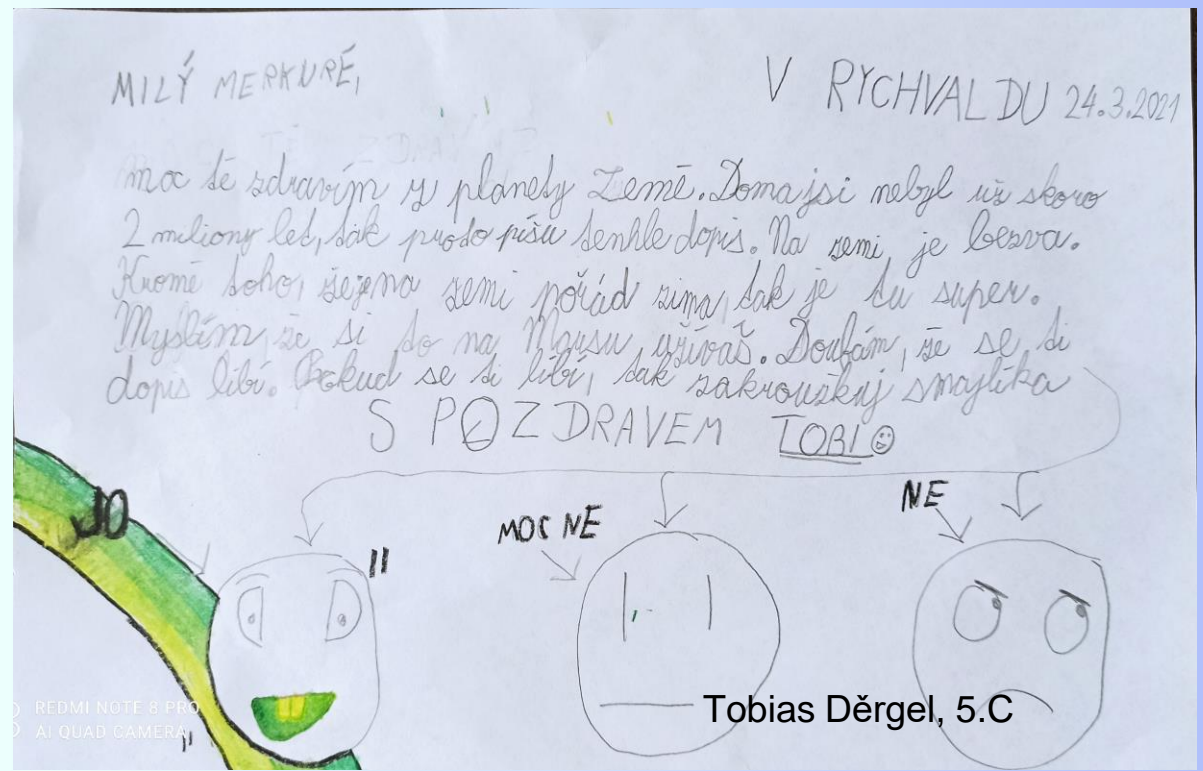 MILÝ MERKURÉ,
V RYCHVALDU 24.3.2021
moc tě zdravím z planety Země. Doma jsi nebyl už skoro
2 miliony let, tak proto píšu tenhle dopis. Na zemi je bezva.
Kromě toho, že je na zemi pořád zima, tak je tu super.
Myslím, že si to na Marsu užíváš. Doufám, že se ti
dopis líbí. Pokud se ti líbí, tak zakroužkuj smajlíka
S POZDRAVEM TOBI
JO
MOC NE
NE
Tobias Děrgel, 5.C
REDMI NOTE 8 PRO
AI QUAD CAMERA